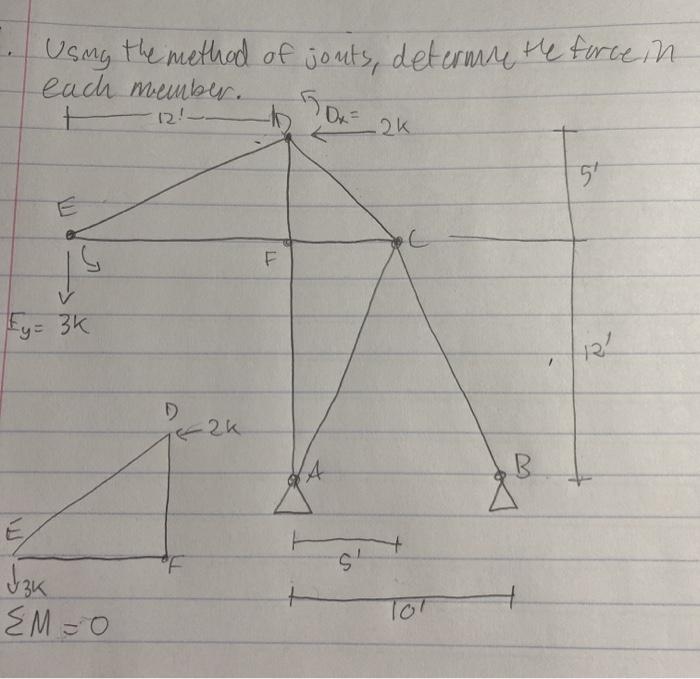 . Using the method of jouts, determine the force in
each member.
12'
D
Dx=
2K
5'
E
F
C
Ey= 3K
12'
D
2K
A
B
E
F
3K
5'
ΣM = 0
10'